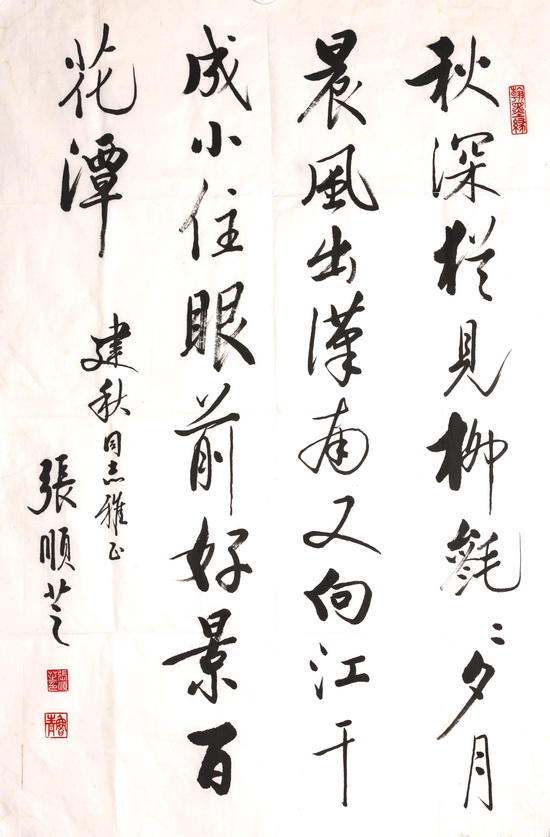 秋深犹見柳毿〻夕月
晨風出漢南又向江干
成小住眼前好景百
花潭
建秋同志雅正
張順芝
翰墨緣